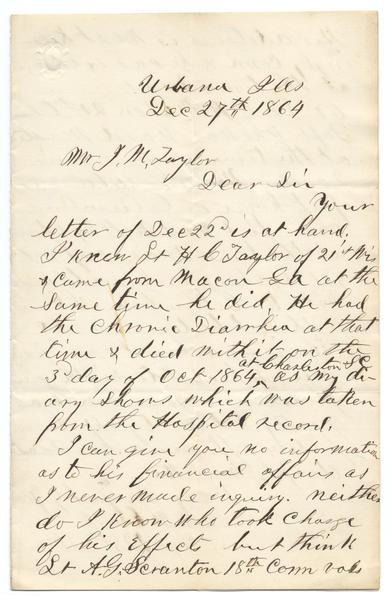 Urbana Ills
Dec 27th 1864
Mr J. M. Taylor
Dear Sir
Your
letter of Dec 22d is at hand.
I know Lt H C Taylor of 21st Wis
& came from Macon Ga at the
same time he did. He had
the Chronic Diarrhea at that
time & died with it on the
at Charleston S C
3d day of Oct 1864, as my di-
ary shows which was taken
from the Hospital record.
I can give you no information
as to his financial affairs as
I never made inquiry. neither
do I know who took charge
of his Effects but think
Lt A. G. Scranton 18th Conn vols